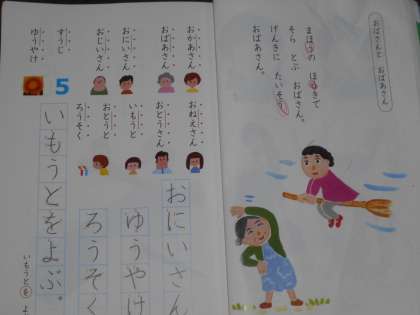 おばさんと おばあさん
まほうの ほうきで
そら とぶ おばさん。
げんきに たいそう
おばあさん。
おかあさん
おばあさん
おにいさん
おじいさん
すうじ
ゆうやけ
5
おねえさん
おとうさん
いもうと
おとうと
ろうそく
おにいさん
ゆうやけ
ろうそく
いもうとをよぶ。
いもうとを よ